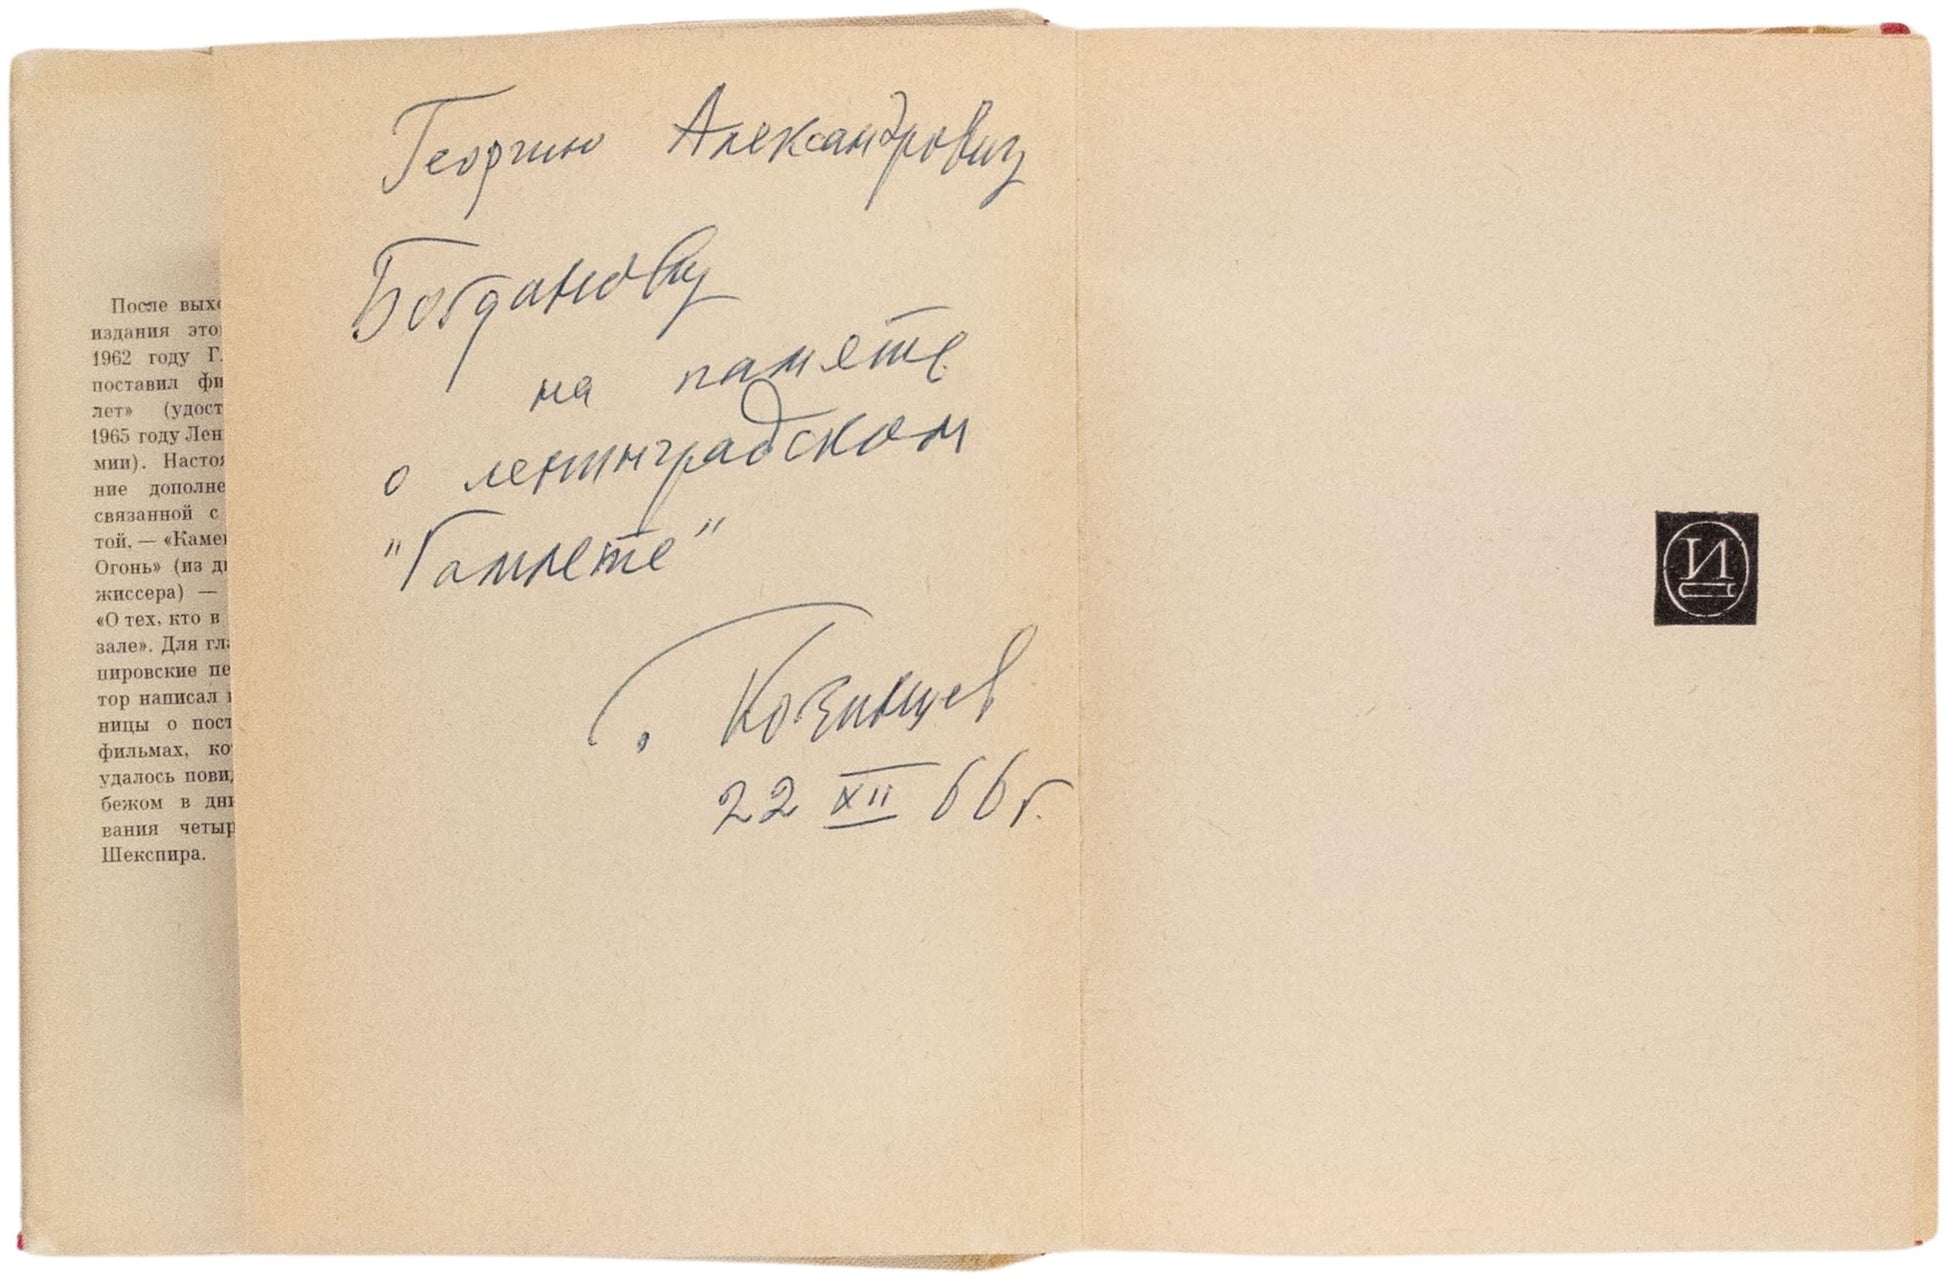 После выхо
издания это
1962 году Г.
поставил фи
лет» (удост
1965 году Лен
мии). Настоя
ние дополне
связанной с
той, — «Камен
Огонь» (из дн
жиссера) —
«О тех, кто в
зале». Для гла
пировские пе
тор написал
ницы о пост
фильмах, ко
удалось пови
бежом в дни
вания четыр
Шекспира.
Георгию Александровичу
Богданову
на память
о ленинградском
"Гамлете"
Г. Козинцев
22 XII 66 г.
И